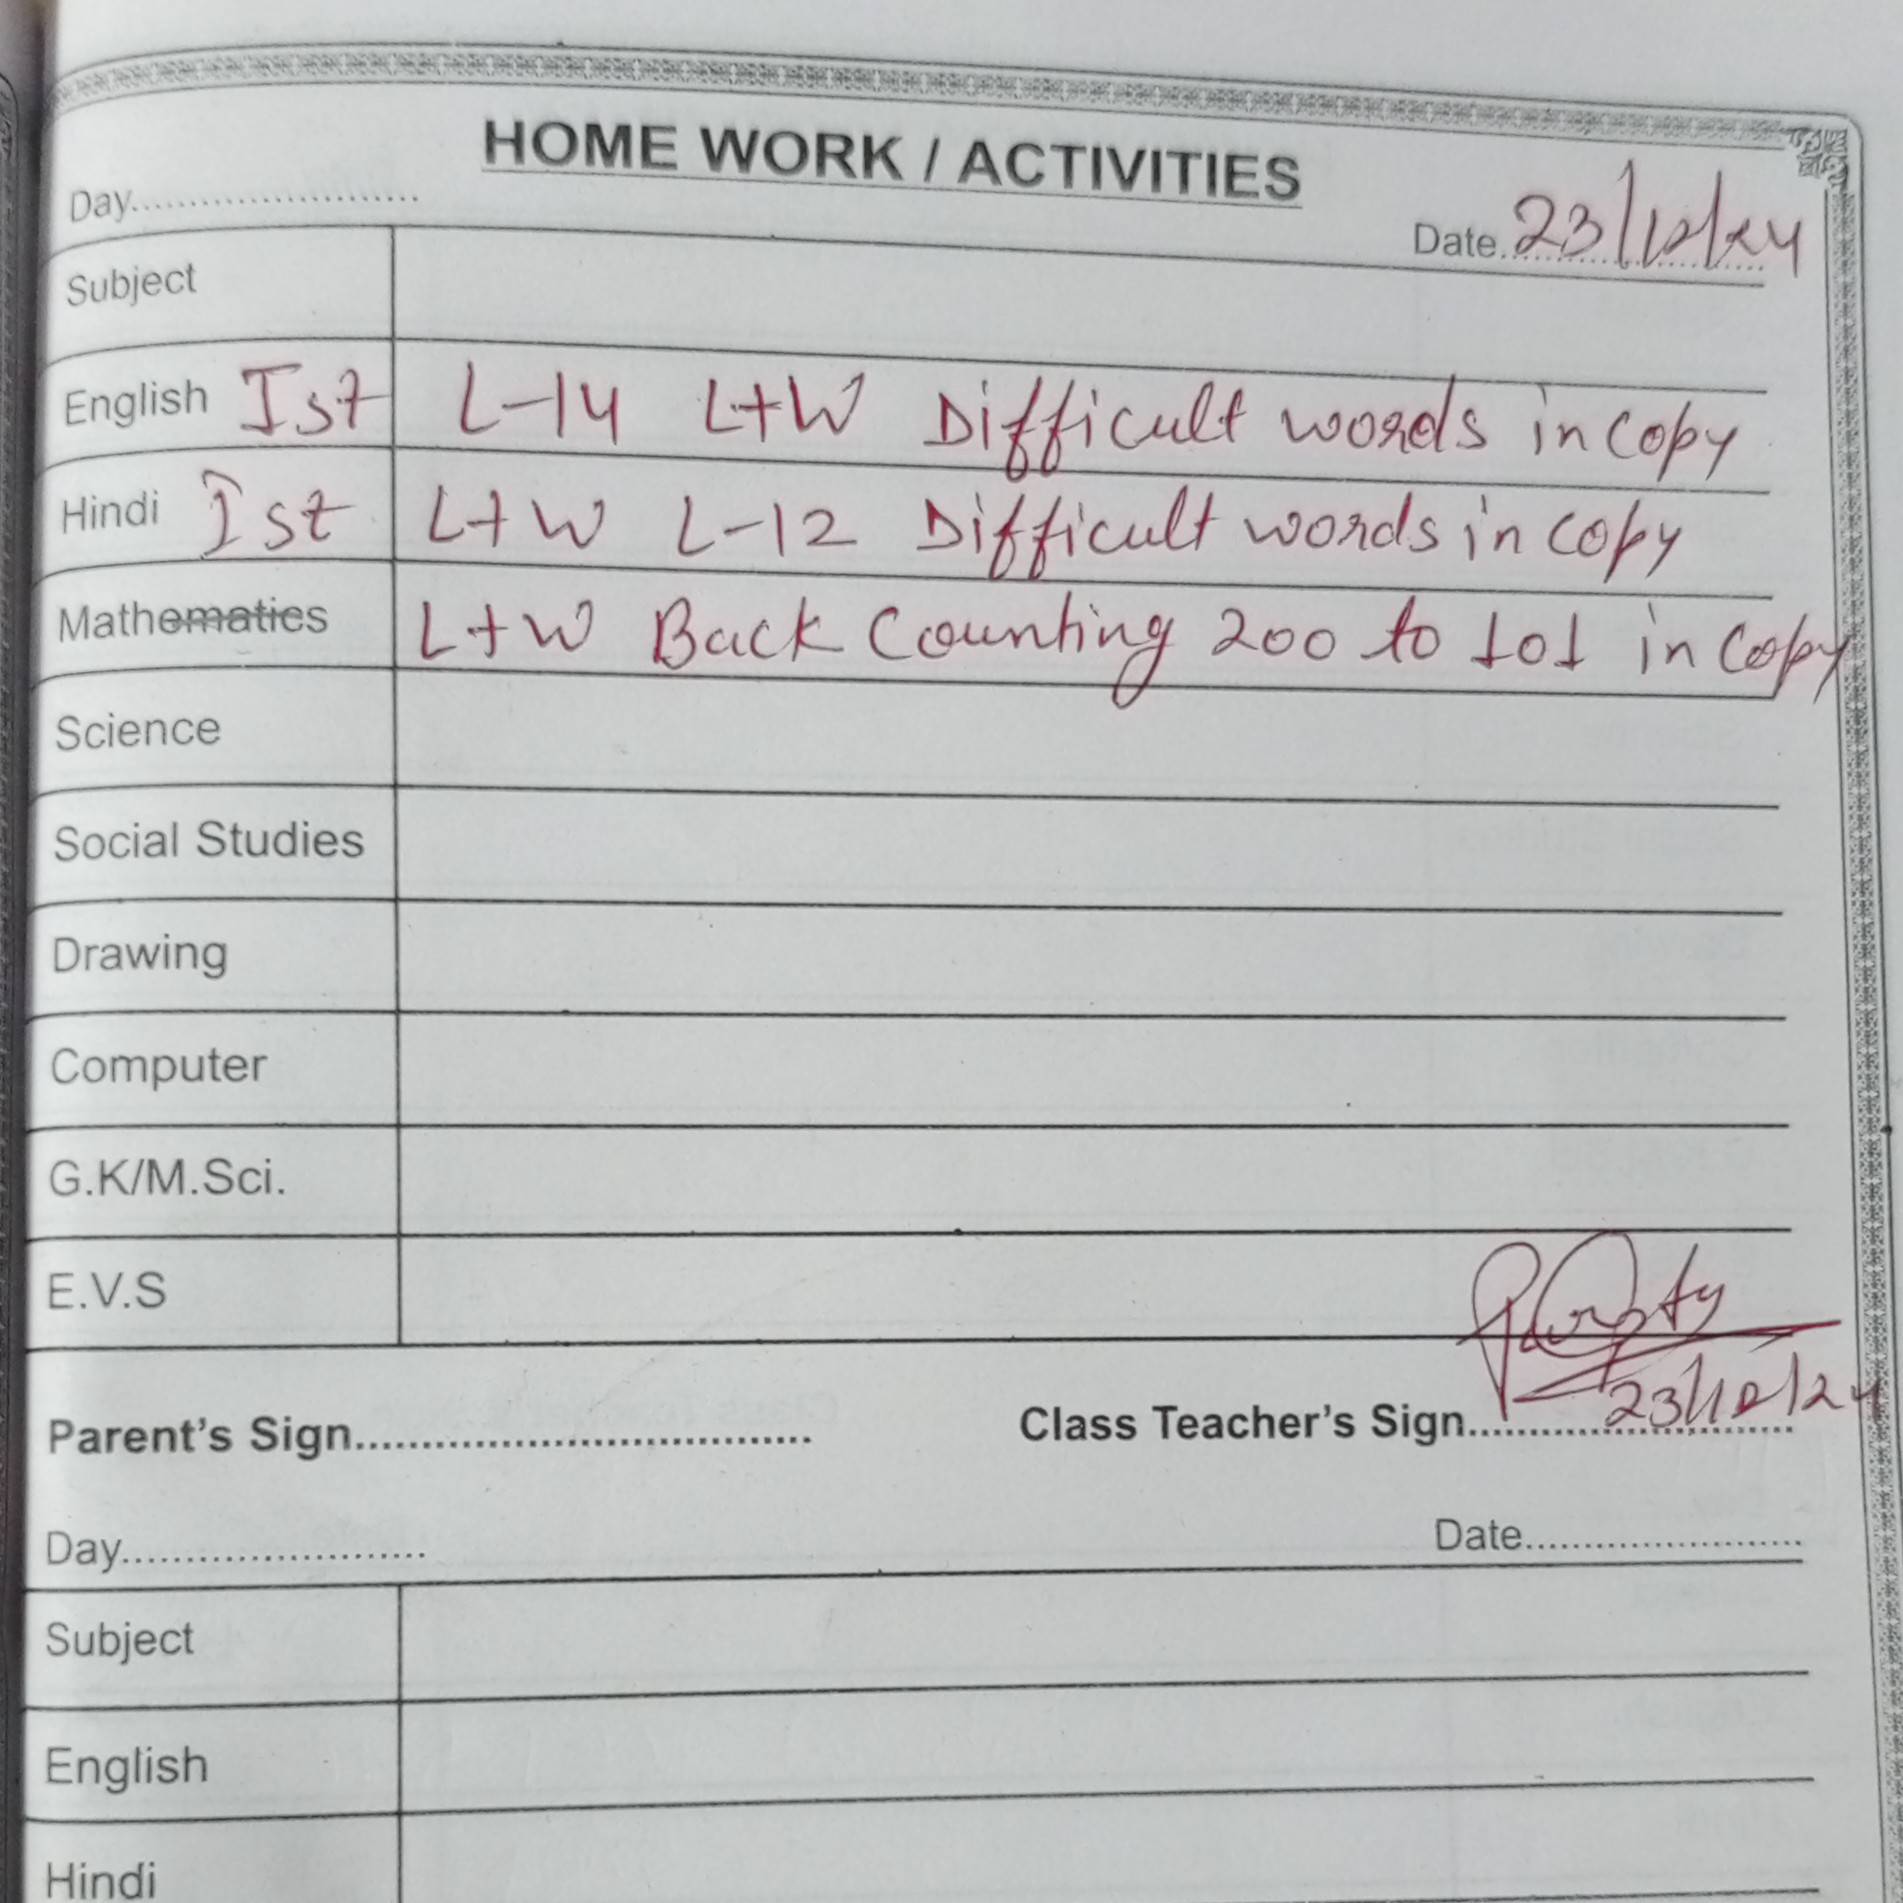 HOME WORK / ACTIVITIES
Day........................ Date 23/12/24
Subject
English Ist L-14 L+W Difficult words in copy
Hindi Ist L+W L-12 Difficult words in copy
Mathematics L+W Back Counting 200 to 101 in Copy
Science
Social Studies
Drawing
Computer
G.K/M.Sci.
E.V.S
23/12/24
Parent's Sign................................... Class Teacher's Sign.........................
Day........................ Date........................
Subject
English
Hindi